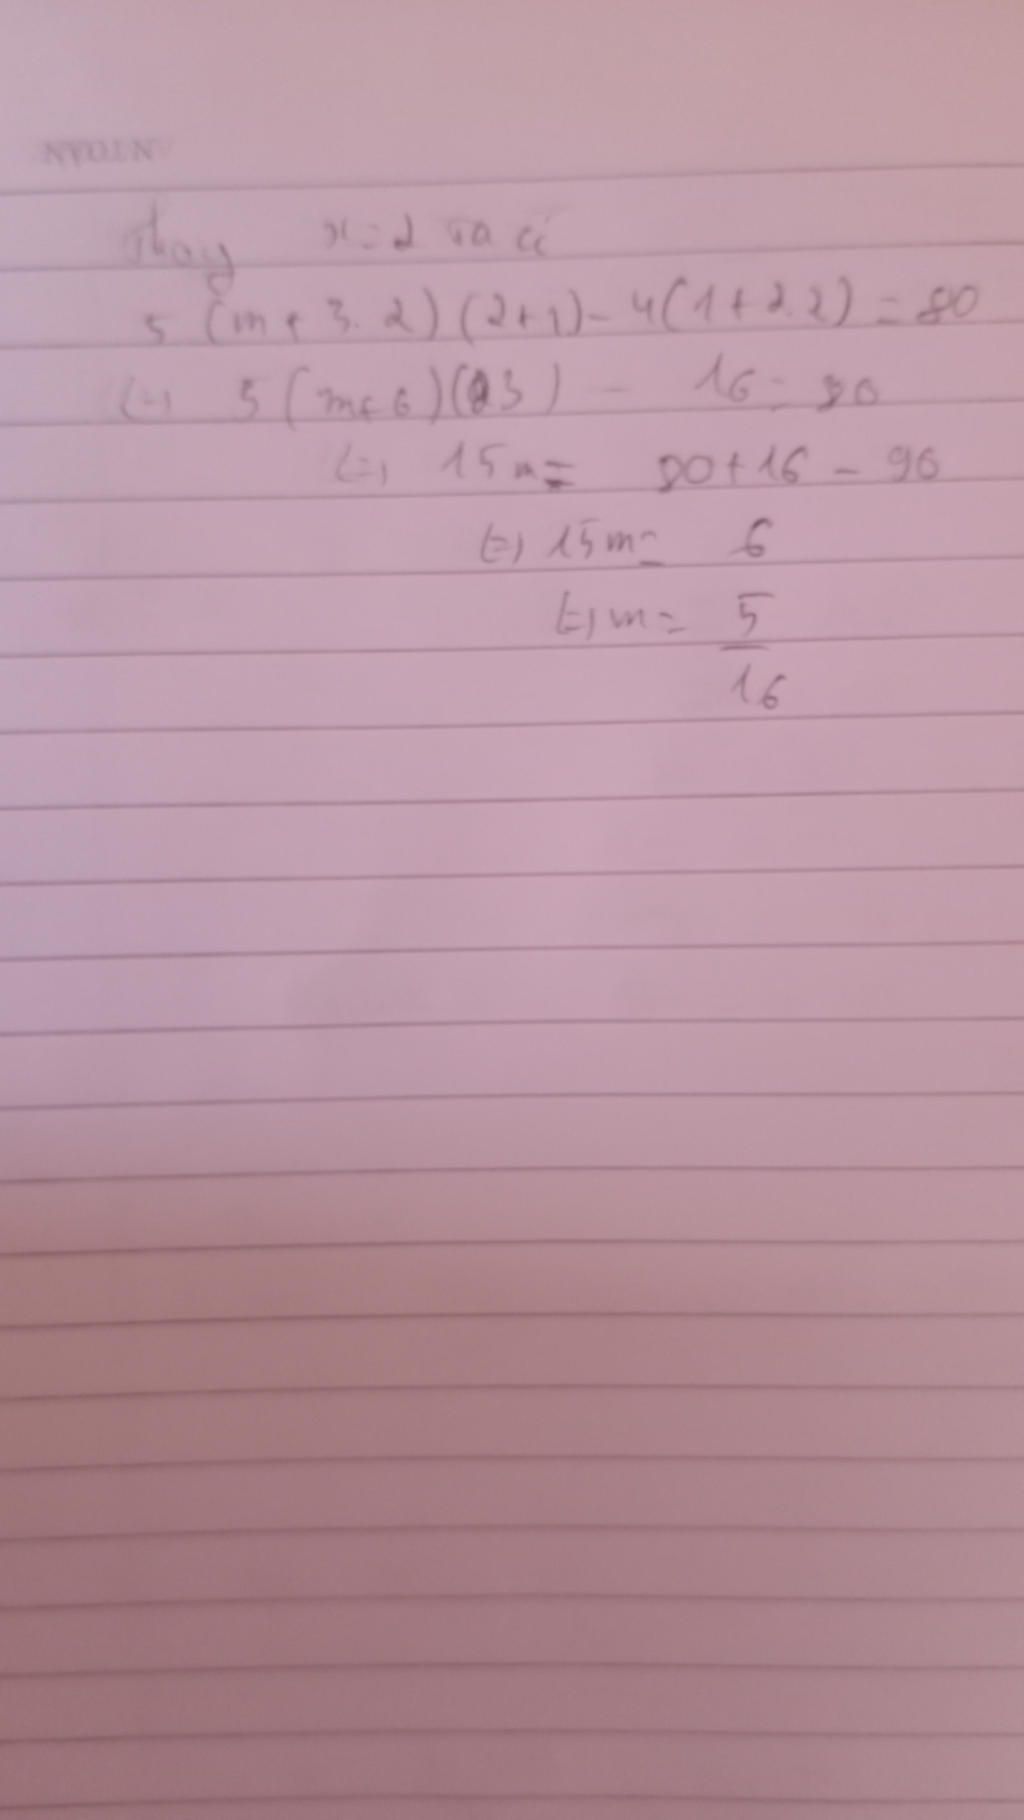 Thay x=2 ta có
5 (m + 3.2) (2+1) - 4(1+2.2) = 80
(=) 5 (m+6)(3) - 16 = 80
(=) 15m = 80+16 - 96
(=) 15m = 6
(=) m = 5
16